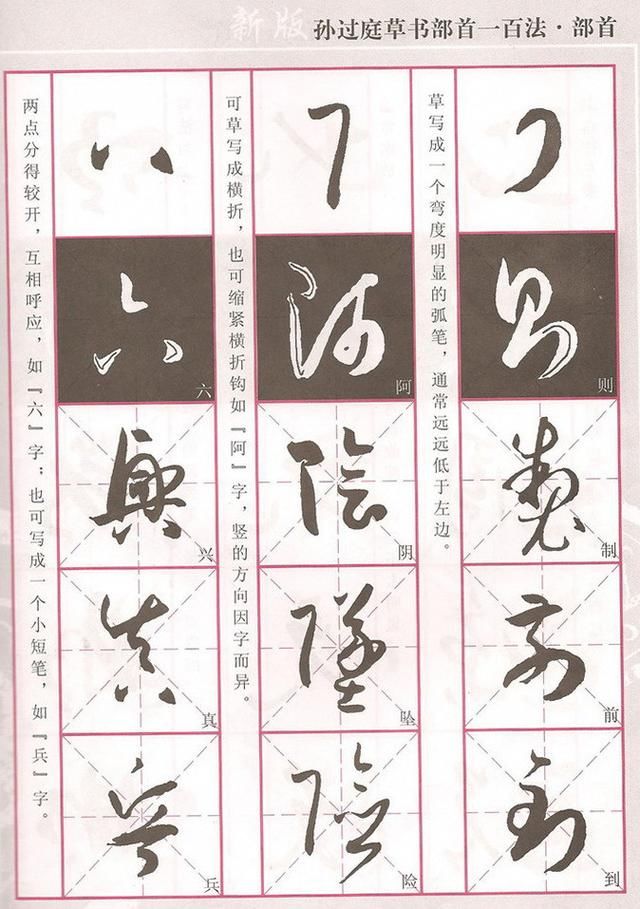 新版 孙过庭草书部首一百法·部首
草写成一个弯度明显的弧笔，通常远远低于左边。
则
制
前
到
可草写成横折，也可缩紧横折钩如『阿』字，竖的方向因字而异。
阿
阴
坠
险
两点分得较开，互相呼应，如『六』字；也可写成一个小短笔，如『兵』字。
六
兴
真
兵